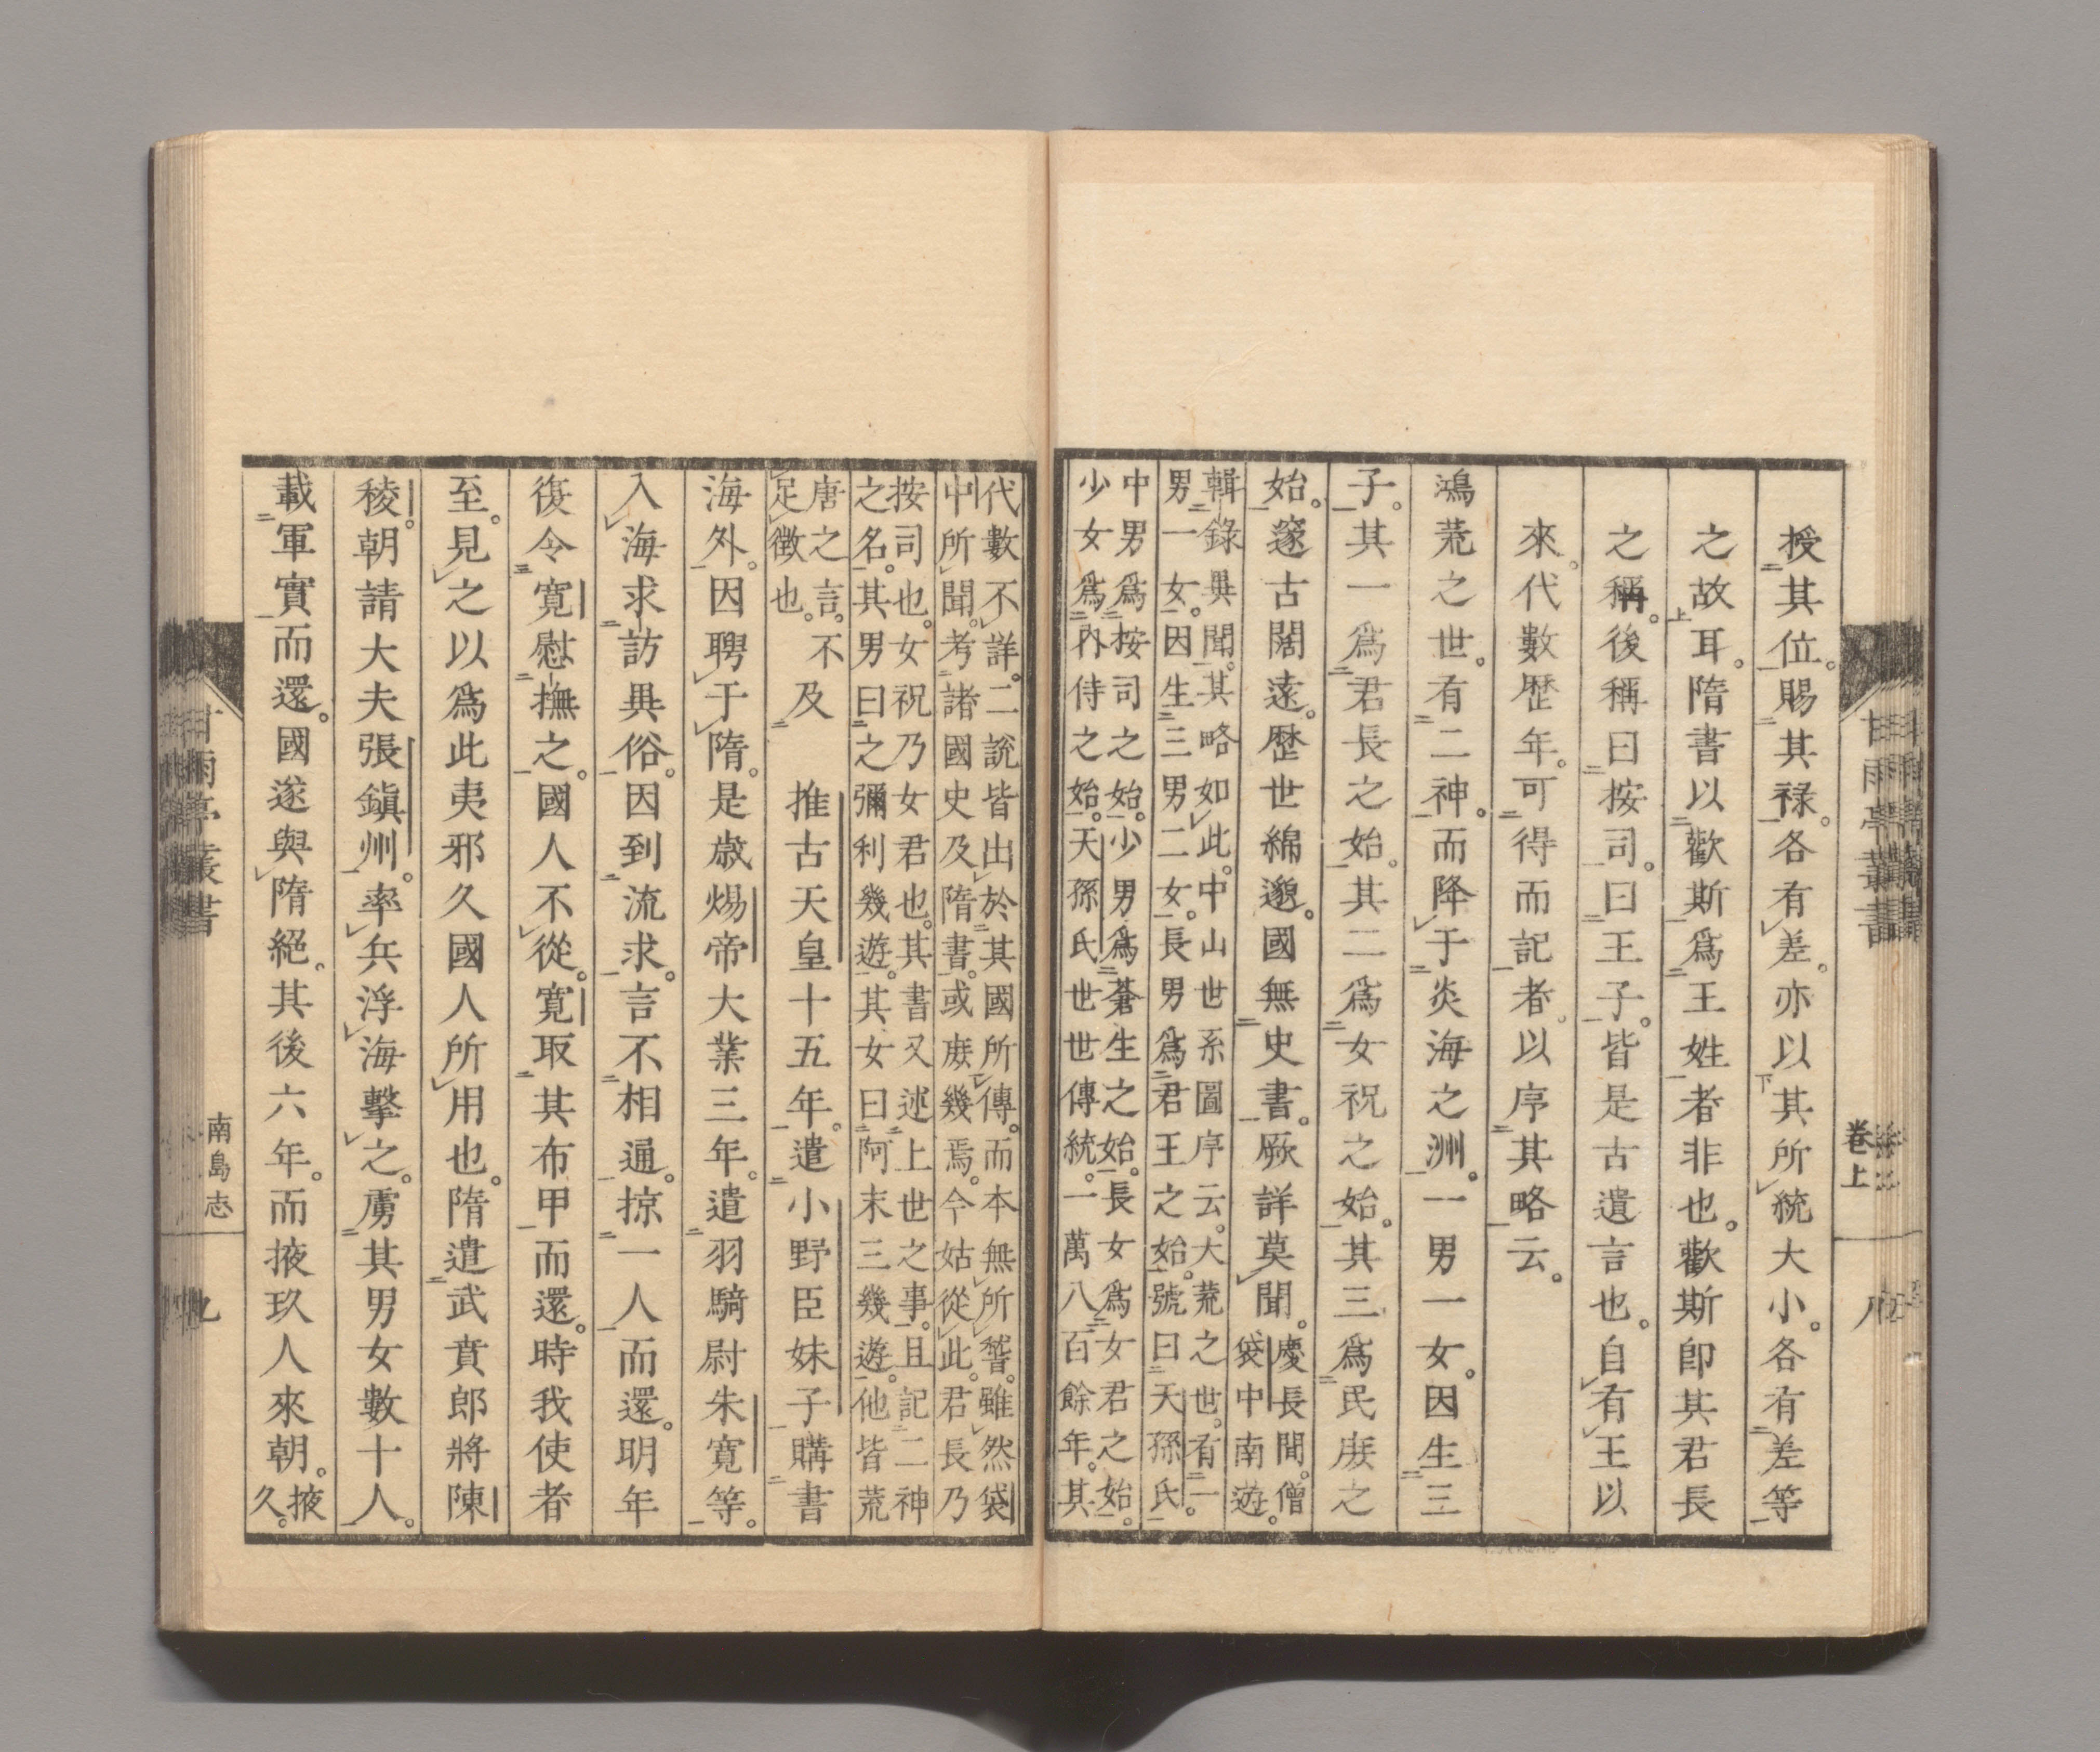 授其位。賜其祿。各有差。亦以其所統大小。各有差等
之故耳。隋書以歡斯爲王姓者非也。歡斯卽其君長
之稱。後稱曰按司。曰王子。皆是古遺言也。自有王以
來。代數歷年。可得而記者。以序其略云。
鴻荒之世。有二神。而降于炎海之洲。一男一女。因生三
子。其一爲君長之始。其二爲女祝之始。其三爲民庶之
始。邃古闊遠。歷世綿邈。國無史書。厥詳莫聞。
慶長間。僧
袋中南遊。
輯錄異聞。其略如此。中山世系圖序云。大荒之世。有一
男一女。因生三男二女。長男爲君王之始。號曰天孫氏。
中男爲按司之始。少男爲蒼生之始。長女爲女君之始。
少女爲內侍之始。天孫氏世世傳統。一萬八百餘年。其
卷上
八
代數不詳。二說皆出於其國所傳。而本無所誓。雖然袋
中所聞。考諸國史及隋書。或庶幾焉。今姑從此。君長乃
按司也。女祝乃女君也。其書又述上世之事。且記二神
之名。其男曰之彌利幾遊。其女曰阿末三幾遊。他皆荒
唐之言。不及
足徵也。
推古天皇十五年。遣小野臣妹子購書
海外。因聘于隋。是歲煬帝大業三年。遣羽騎尉朱寬等。
入海求訪異俗。因到流求。言不相通。掠一人而還。明年
復令寬慰撫之。國人不從。寬取其布甲而還。時我使者
至。見之以爲此夷邪久國人所用也。隋遣武賁郎將陳
稜。朝請大夫張鎭州。率兵浮海擊之。虜其男女數十人。
載軍實而還。國遂與隋絕。其後六年。而掖玖人來朝。
掖
久。
甘雨亭叢書
南島志
九